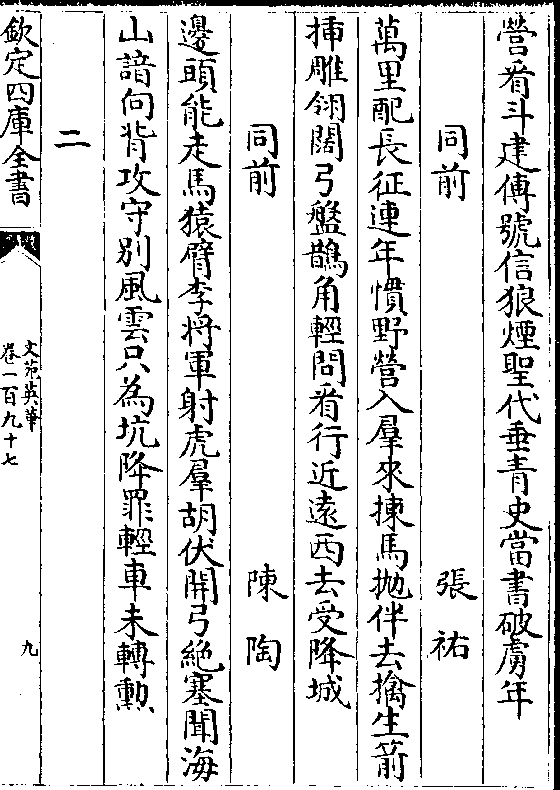 營看斗建傳號信狼煙聖代垂青史當書破虜年
同前 張祐
萬里配長征連年慣野營入羣來揀馬拋伴去擒生箭
揷雕翎闊弓盤鵲角輕問看行近遠西去受降城
同前 陳陶
邊頭能走馬猿臂李將軍射虎羣胡伏開弓絶塞聞海
山諳向背攻守别風雲只為坑降罪輕車未轉勳
二
欽定四庫全書
文苑英華
卷一百九十七
九